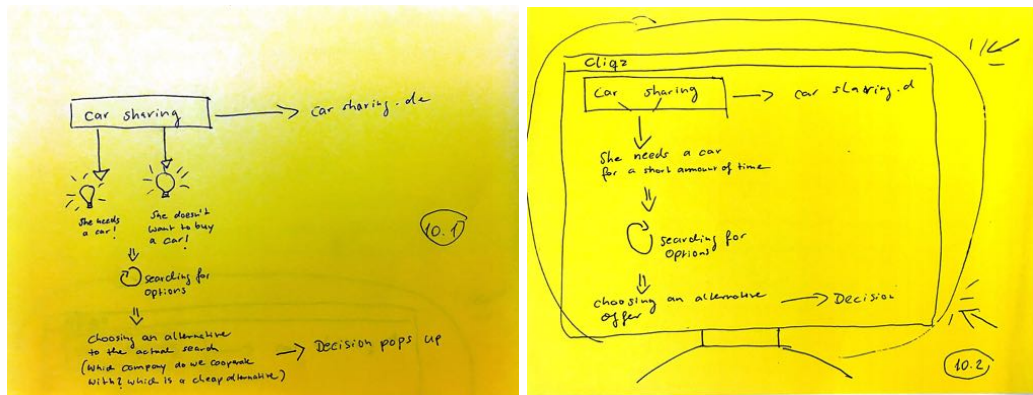 car sharing
car sharing.de
She needs
a car!
She doesn't
want to buy
a car!
10.1
searching for
options
choosing an alternative
to the actual search
(which company do we cooperate
with? which is a cheap alternative)
Decision pops up
cliqz
car sharing
car sharing.d
She needs a car
for a short amount of time
searching for
options
choosing an alternative
offer
Decision
10.2